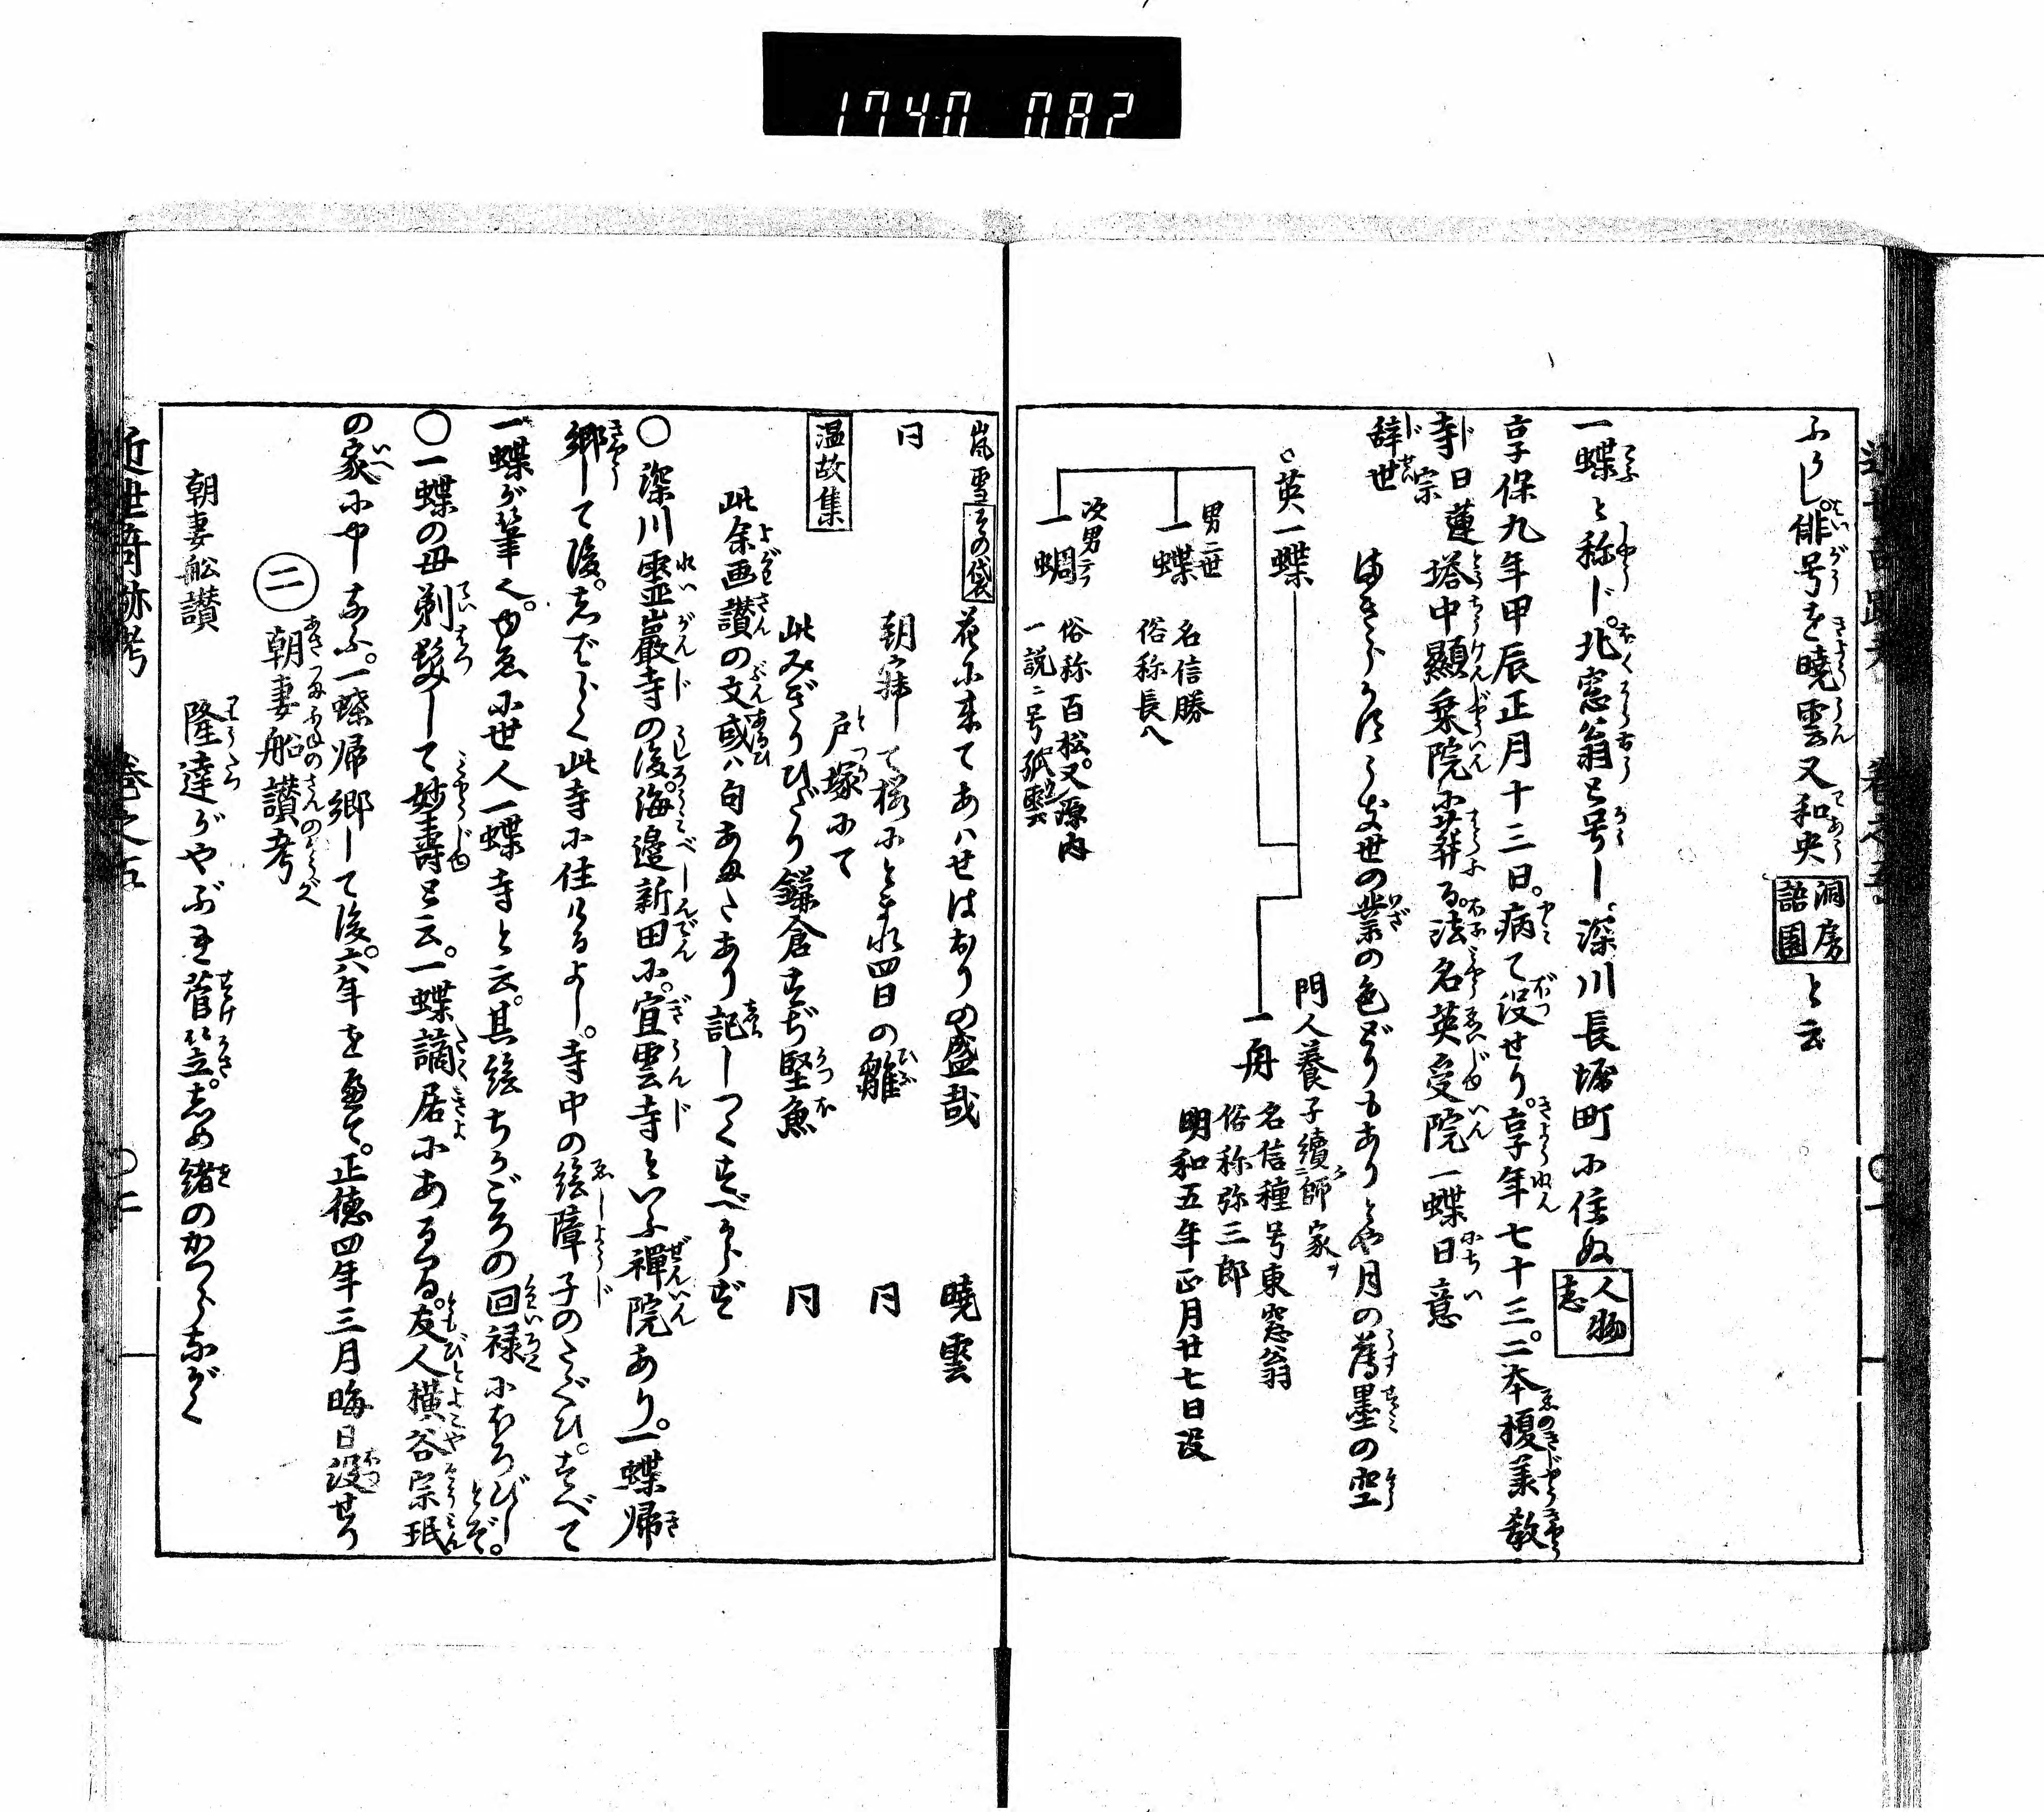 1740 082
ふらし。俳号を暁雲又和央洞房語園と云
一蝶と称じ。北窓翁と号し、深川長堀町に住ぬ人物志
享保九年甲辰正月十三日。病て没せり。享年七十三。二本榎承教
寺日蓮宗塔中顕乗院に葬る。法名英受院一蝶日意
辞世
まぎらかすうき世の業の色どりもありとや月の薄墨の空
○英一蝶
門人養子續二師家ヲ
一舟
名信種号東窓翁
俗称弥三郎
明和五年正月廿七日没
男二世
一蝶
名信勝
俗称長八
次男ニテ
一蜩
俗称百松。又源内
一説ニ号孤雲云
嵐雪その袋 花に来てあはせはおりの盛哉 暁雲
同 朝寐して桜にとまれ四日の雛 同
戸塚にて
温故集 此みぎりひだり鎌倉すぢ堅魚 同
此余画讃の文或ハ句あまたあり記しつくすべからず
○深川霊巌寺の後。海邉新田に。宜雲寺といふ禅院あり。一蝶帰
郷して後。しばらく此寺に住けるよし。寺中の絵障子のたぐひ。すべて
一蝶が筆也。ゆゑに世人一蝶寺と云。其絵ちかごろの回禄にほろびしとぞ。
○一蝶の母剃髪して妙壽と云。一蝶謫居にあるうち。友人横谷宗珉
の家にやしなふ。一蝶帰郷して後。六年を歴て。正徳四年三月晦日没せり
二 朝妻船讃考
朝妻舩讃 隆達がやぶれ菅笠。しめ緒のかつらながく
近世奇跡考 巻之五 ○二